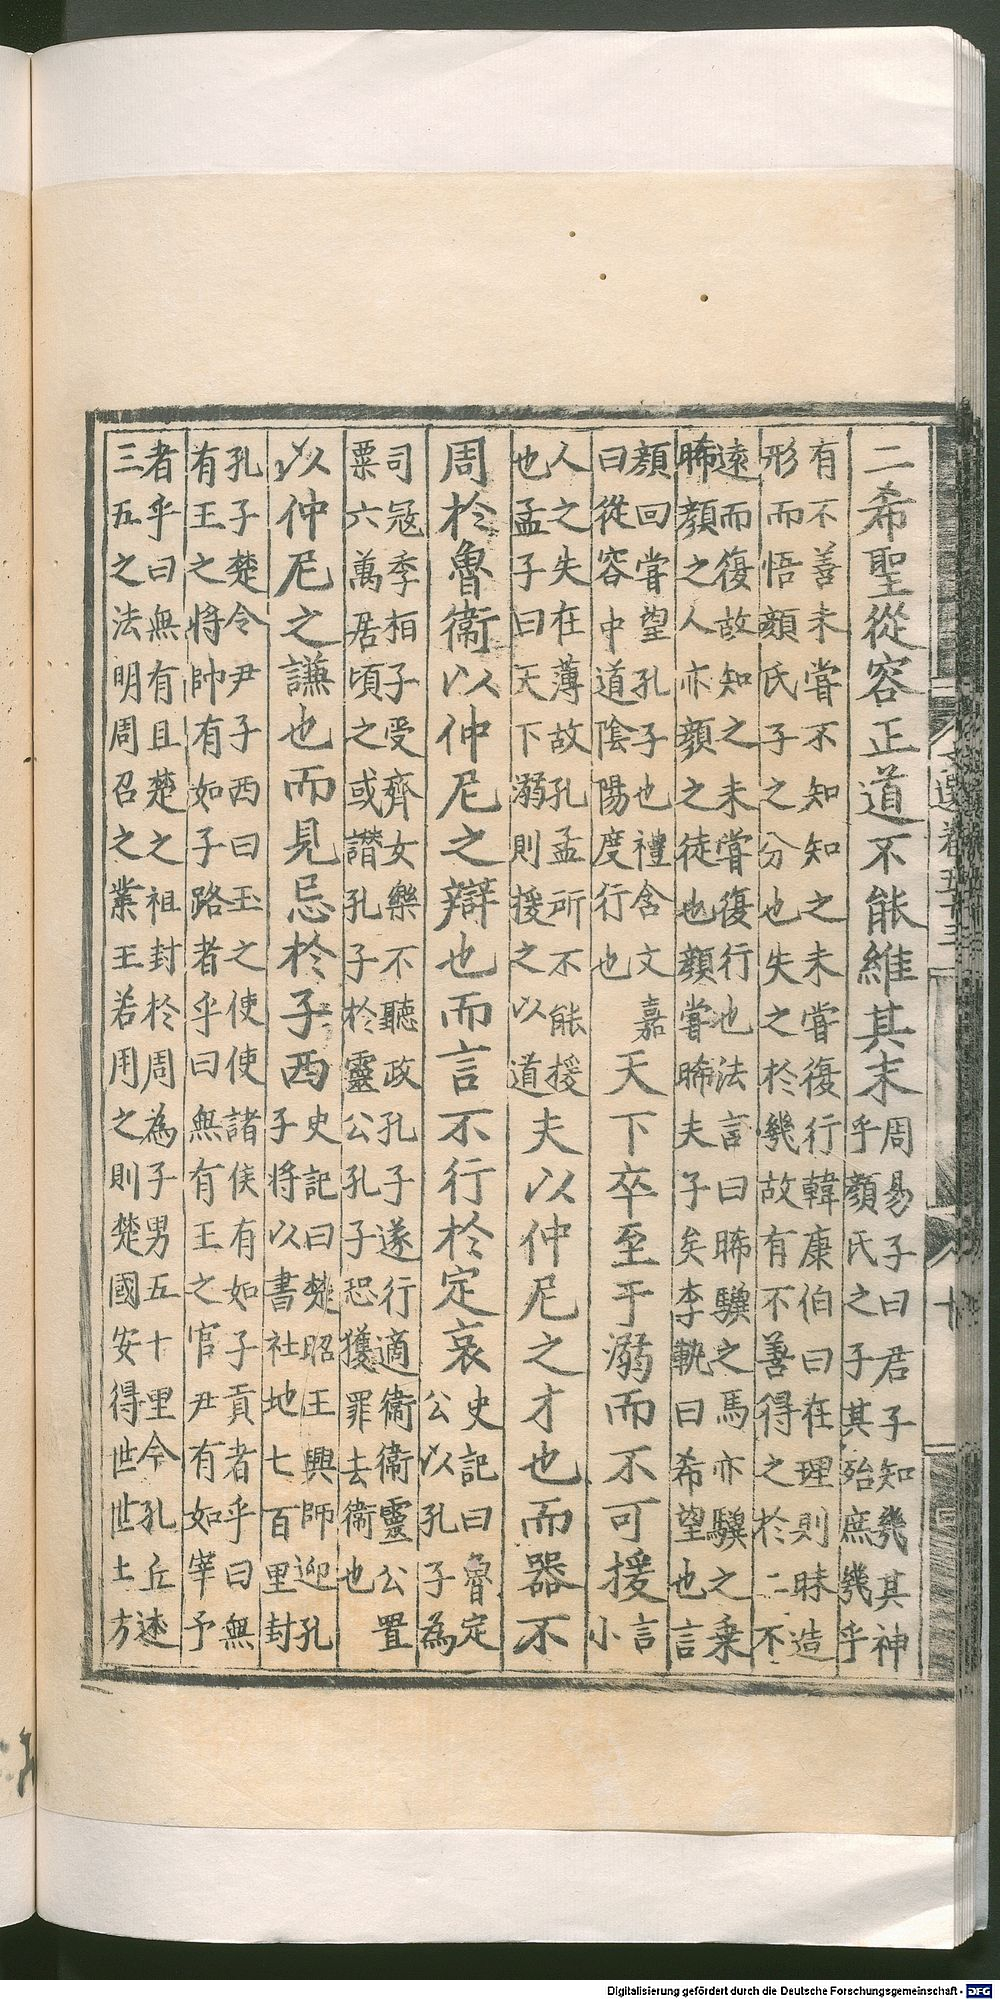 二希聖從容正道不能維其末周易子曰君子知幾其神
乎顏氏之子其殆庶幾乎
有不善未嘗不知知之未嘗復行韓康伯曰在理則昧造
形而悟顏氏子之分也失之於幾故有不善得之於二不
遠而復故知之未嘗復行也法言曰睎驥之馬亦驥之乘
睎顏之人亦顏之徒也顏嘗睎夫子矣李軌曰希望也言
顏回嘗望孔子也禮含文嘉
曰從容中道陰陽度行也
天下卒至于溺而不可援言
小
人之失在薄故孔孟所不能援
也孟子曰天下溺則援之以道
夫以仲尼之才也而器不
周於魯衛以仲尼之辯也而言不行於定哀史記曰魯定
公以孔子為
司冦季桓子受齊女樂不聽政孔子遂行適衛衛靈公置
粟六萬居頃之或譖孔子於靈公孔子恐獲罪去衛也
以仲尼之謙也而見忌於子西史記曰楚昭王興師迎孔
子將以書社地七百里封
孔子楚令尹子西曰王之使使諸侯有如子貢者乎曰無
有王之將帥有如子路者乎曰無有王之官尹有如宰予
者乎曰無有且楚之祖封於周為子男五十里今孔丘述
三五之法明周召之業王若用之則楚國安得世世土方
文選卷五十三
十
Digitalisierung gefördert durch die Deutsche Forschungsgemeinschaft - DFG